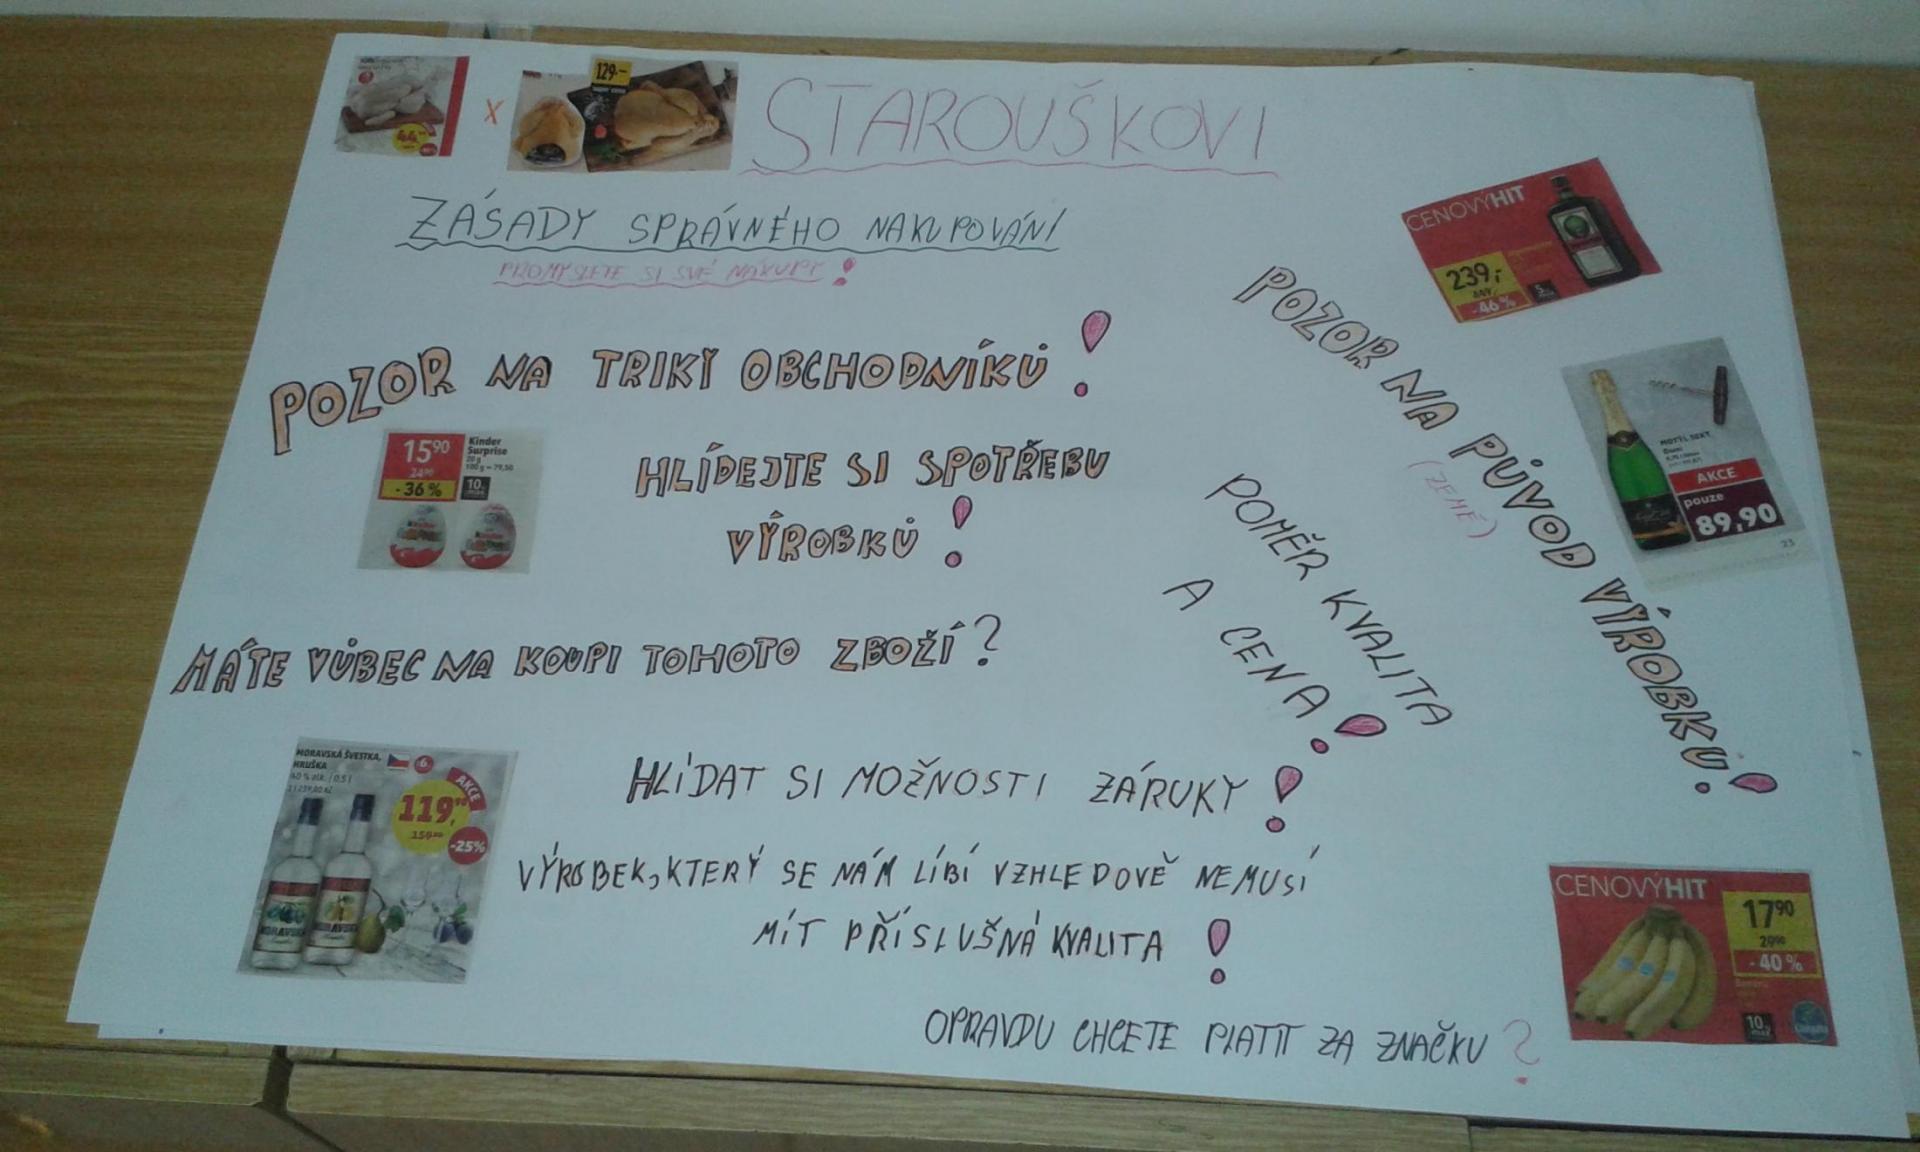 44
129.-
X
STAROUŠKOVI
ZÁSADY SPRÁVNÉHO NAKUPOVÁNÍ
PROMYSLETE SI SVÉ NÁKUPY!
POZOR NA TRIKY OBCHODNÍKŮ!
15 90
24 90
-36 %
Kinder
Surprise
20 g
100 g = 79,50
10
max
HLÍDEJTE SI SPOTŘEBU
VÝROBKŮ!
MÁTE VŮBEC NA KOUPI TOHOTO ZBOŽÍ?
MORAVSKÁ ŠVESTKA,
HRUŠKA
40 % alk. / 0,5 l
AKCE
119,
-25%
HLÍDAT SI MOŽNOSTI ZÁRUKY!
VÝROBEK, KTERÝ SE NÁM LÍBÍ VZHLEDOVĚ NEMUSÍ
MÍT PŘÍSLUŠNÁ KVALITA!
OPRAVDU CHCETE PLATIT ZA ZNAČKU?
POZOR NA PŮVOD VÝROBKU!
(ZEMĚ)
POMĚR KVALITA
A CENA!
CENOVÝHIT
239,-
-46 %
AKCE
pouze
89,90
23
CENOVÝHIT
17 90
29 90
-40 %
10
max
Chiquita